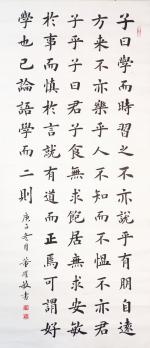 子曰學而時習之不亦說乎有朋自遠
方来不亦樂乎人不知而不慍不亦君
子乎子曰君子食無求飽居無求安敏
於事而慎於言就有道而正焉可謂好
學也已論語學而二則 庚子 月 敏書